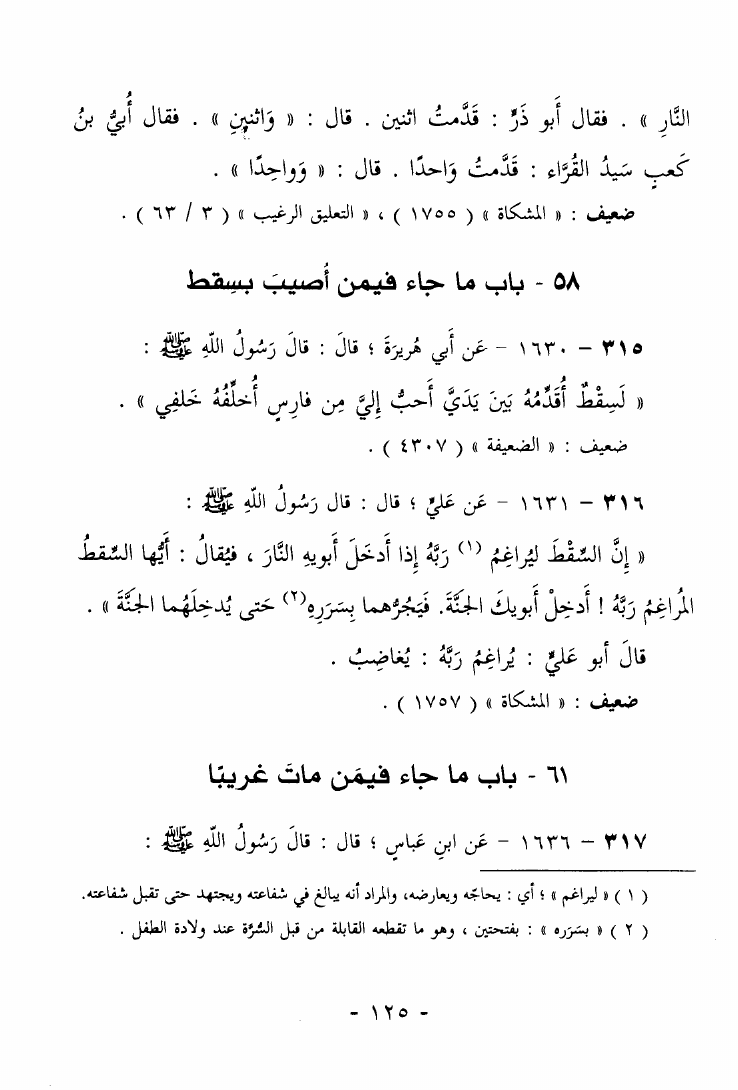 النَّارِ » . فقال أَبو ذَرٍّ : قَدَّمتُ اثنين . قال : « وَاثنينِ » . فقال أُبيُّ بنُ
كَعبٍ سَيدُ القُرَّاء : قَدَّمتُ وَاحدًا . قال : « وَواحِدًا » .
ضعيف : « المشكاة » ( ١٧٥٥ ) ، « التعليق الرغيب » ( ٣ / ٦٣ ) .
٥٨ - باب ما جاء فيمن أُصيبَ بسِقط
٣١٥ – ١٦٣٠ – عَن أَبي هُريرَةَ ؛ قالَ : قالَ رَسُولُ اللّهِ ﷺ :
« لَسِقْطٌ أُقَدِّمُهُ بَينَ يَدَيَّ أَحبُّ إِليَّ مِن فارِسٍ أُخلِّفُهُ خَلفِي » .
ضعيف : « الضعيفة » ( ٤٣٠٧ ) .
٣١٦ – ١٦٣١ – عَن عَليٍّ ؛ قال : قال رَسُولُ اللّهِ ﷺ :
« إِنَّ السِّقْطَ ليُراغِمُ (١) رَبَّهُ إِذا أَدخَلَ أَبويهِ النَّارَ ، فيُقالُ : أَيُّها السِّقطُ
المُراغِمُ رَبَّهُ ! أَدخِلْ أَبويكَ الجَنَّةَ. فَيَجُرُّهما بِسَرَرِهِ(٢) حَتى يُدخِلَهُما الجَنَّةَ » .
قالَ أَبو عَليٍّ : يُراغِمُ رَبَّهُ : يُغاضِبُ .
ضعيف : « المشكاة » ( ١٧٥٧ ) .
٦١ - باب ما جاء فيمَن ماتَ غريبًا
٣١٧ – ١٦٣٦ – عَن ابنِ عَباسٍ ؛ قال : قالَ رَسُولُ اللّهِ ﷺ :
( ١ ) « ليراغم » ؛ أي : يحاجّه ويعارضه، والمراد أنه يبالغ في شفاعته ويجتهد حتى تقبل شفاعته.
( ٢ ) « بسَرَره » : بفتحتين ، وهو ما تقطعه القابلة من قبل السُّرَّة عند ولادة الطفل .
- ١٢٥ -